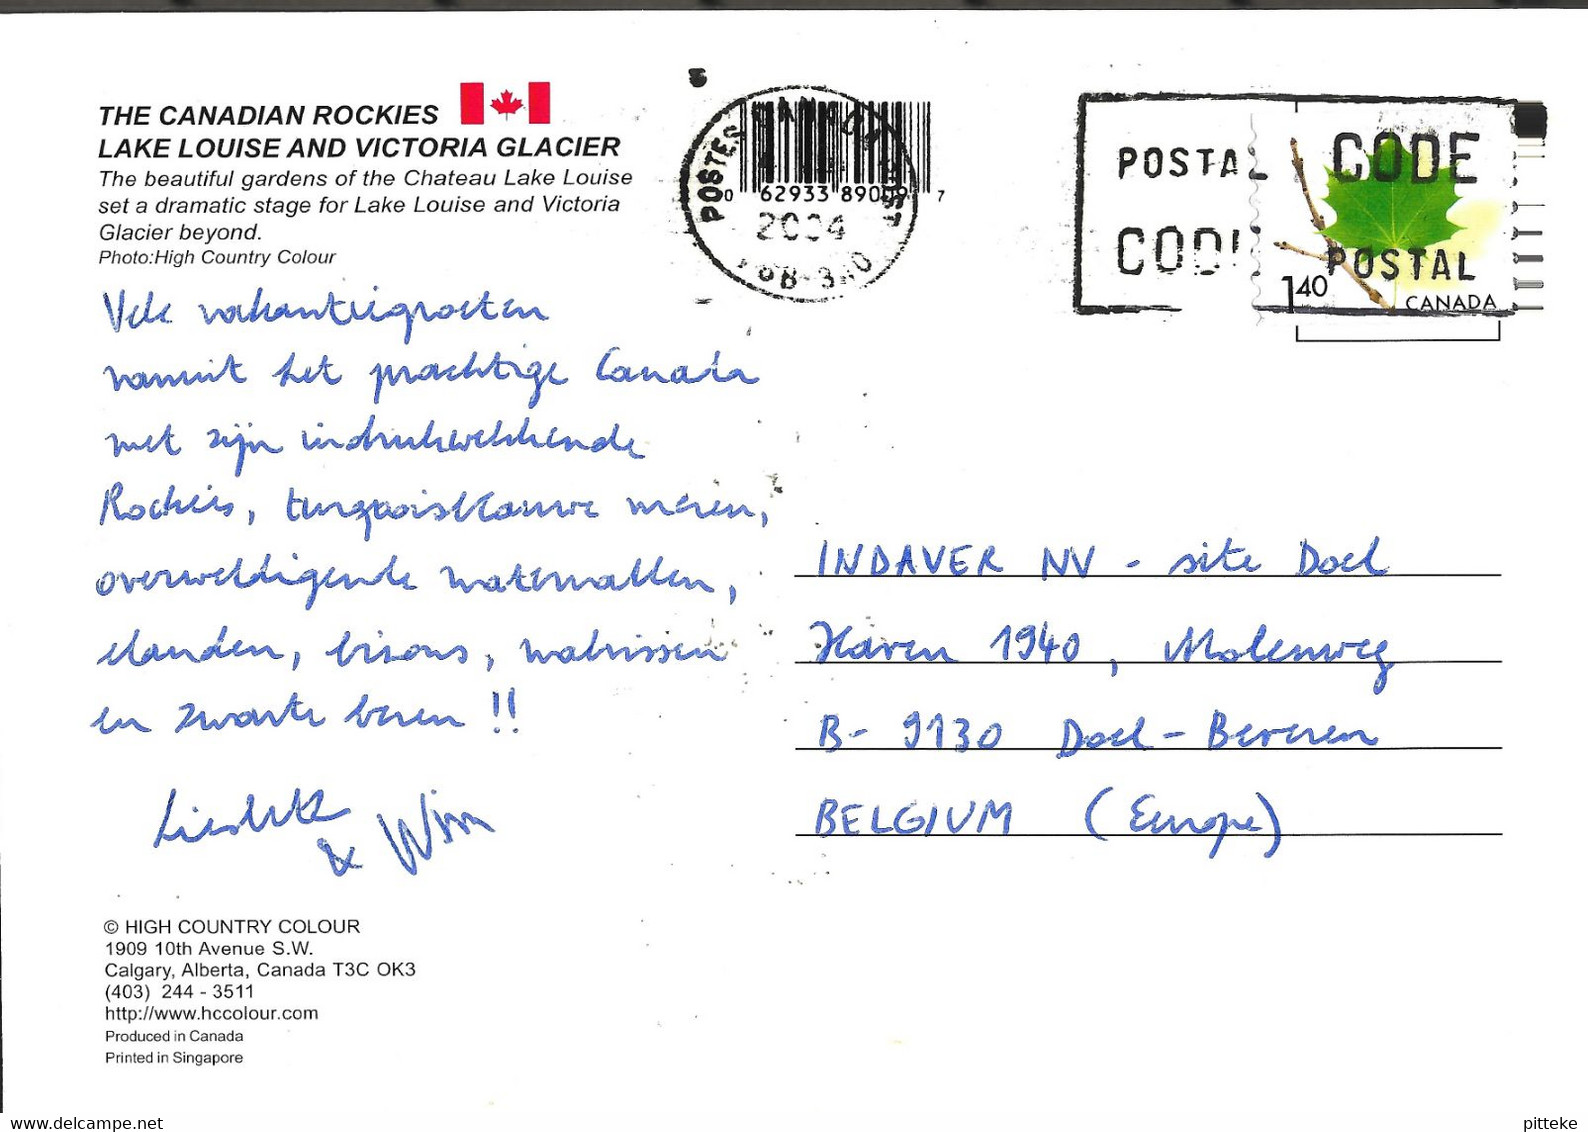 THE CANADIAN ROCKIES
LAKE LOUISE AND VICTORIA GLACIER
The beautiful gardens of the Chateau Lake Louise
set a dramatic stage for Lake Louise and Victoria
Glacier beyond.
Photo:High Country Colour
Vele vakantiegroeten
vanuit het prachtige Canada
met zijn indrukwekkende
Rockies, turqooisblauwe meren,
overweldigende watervallen,
elanden, bisons, walrissen
en zwarte beren !!
& Wim
© HIGH COUNTRY COLOUR
1909 10th Avenue S.W.
Calgary, Alberta, Canada T3C OK3
(403) 244 - 3511
http://www.hccolour.com
Produced in Canada
Printed in Singapore
POSTES CANADA
0 62933 89009 7
2004
POSTAL CODE
CODE POSTAL
1.40 CANADA
INDAVER NV - site Doel
Haven 1940, Molenweg
B- 9130 Doel - Beveren
BELGIUM (Europe)
www.delcampe.net
pitteke